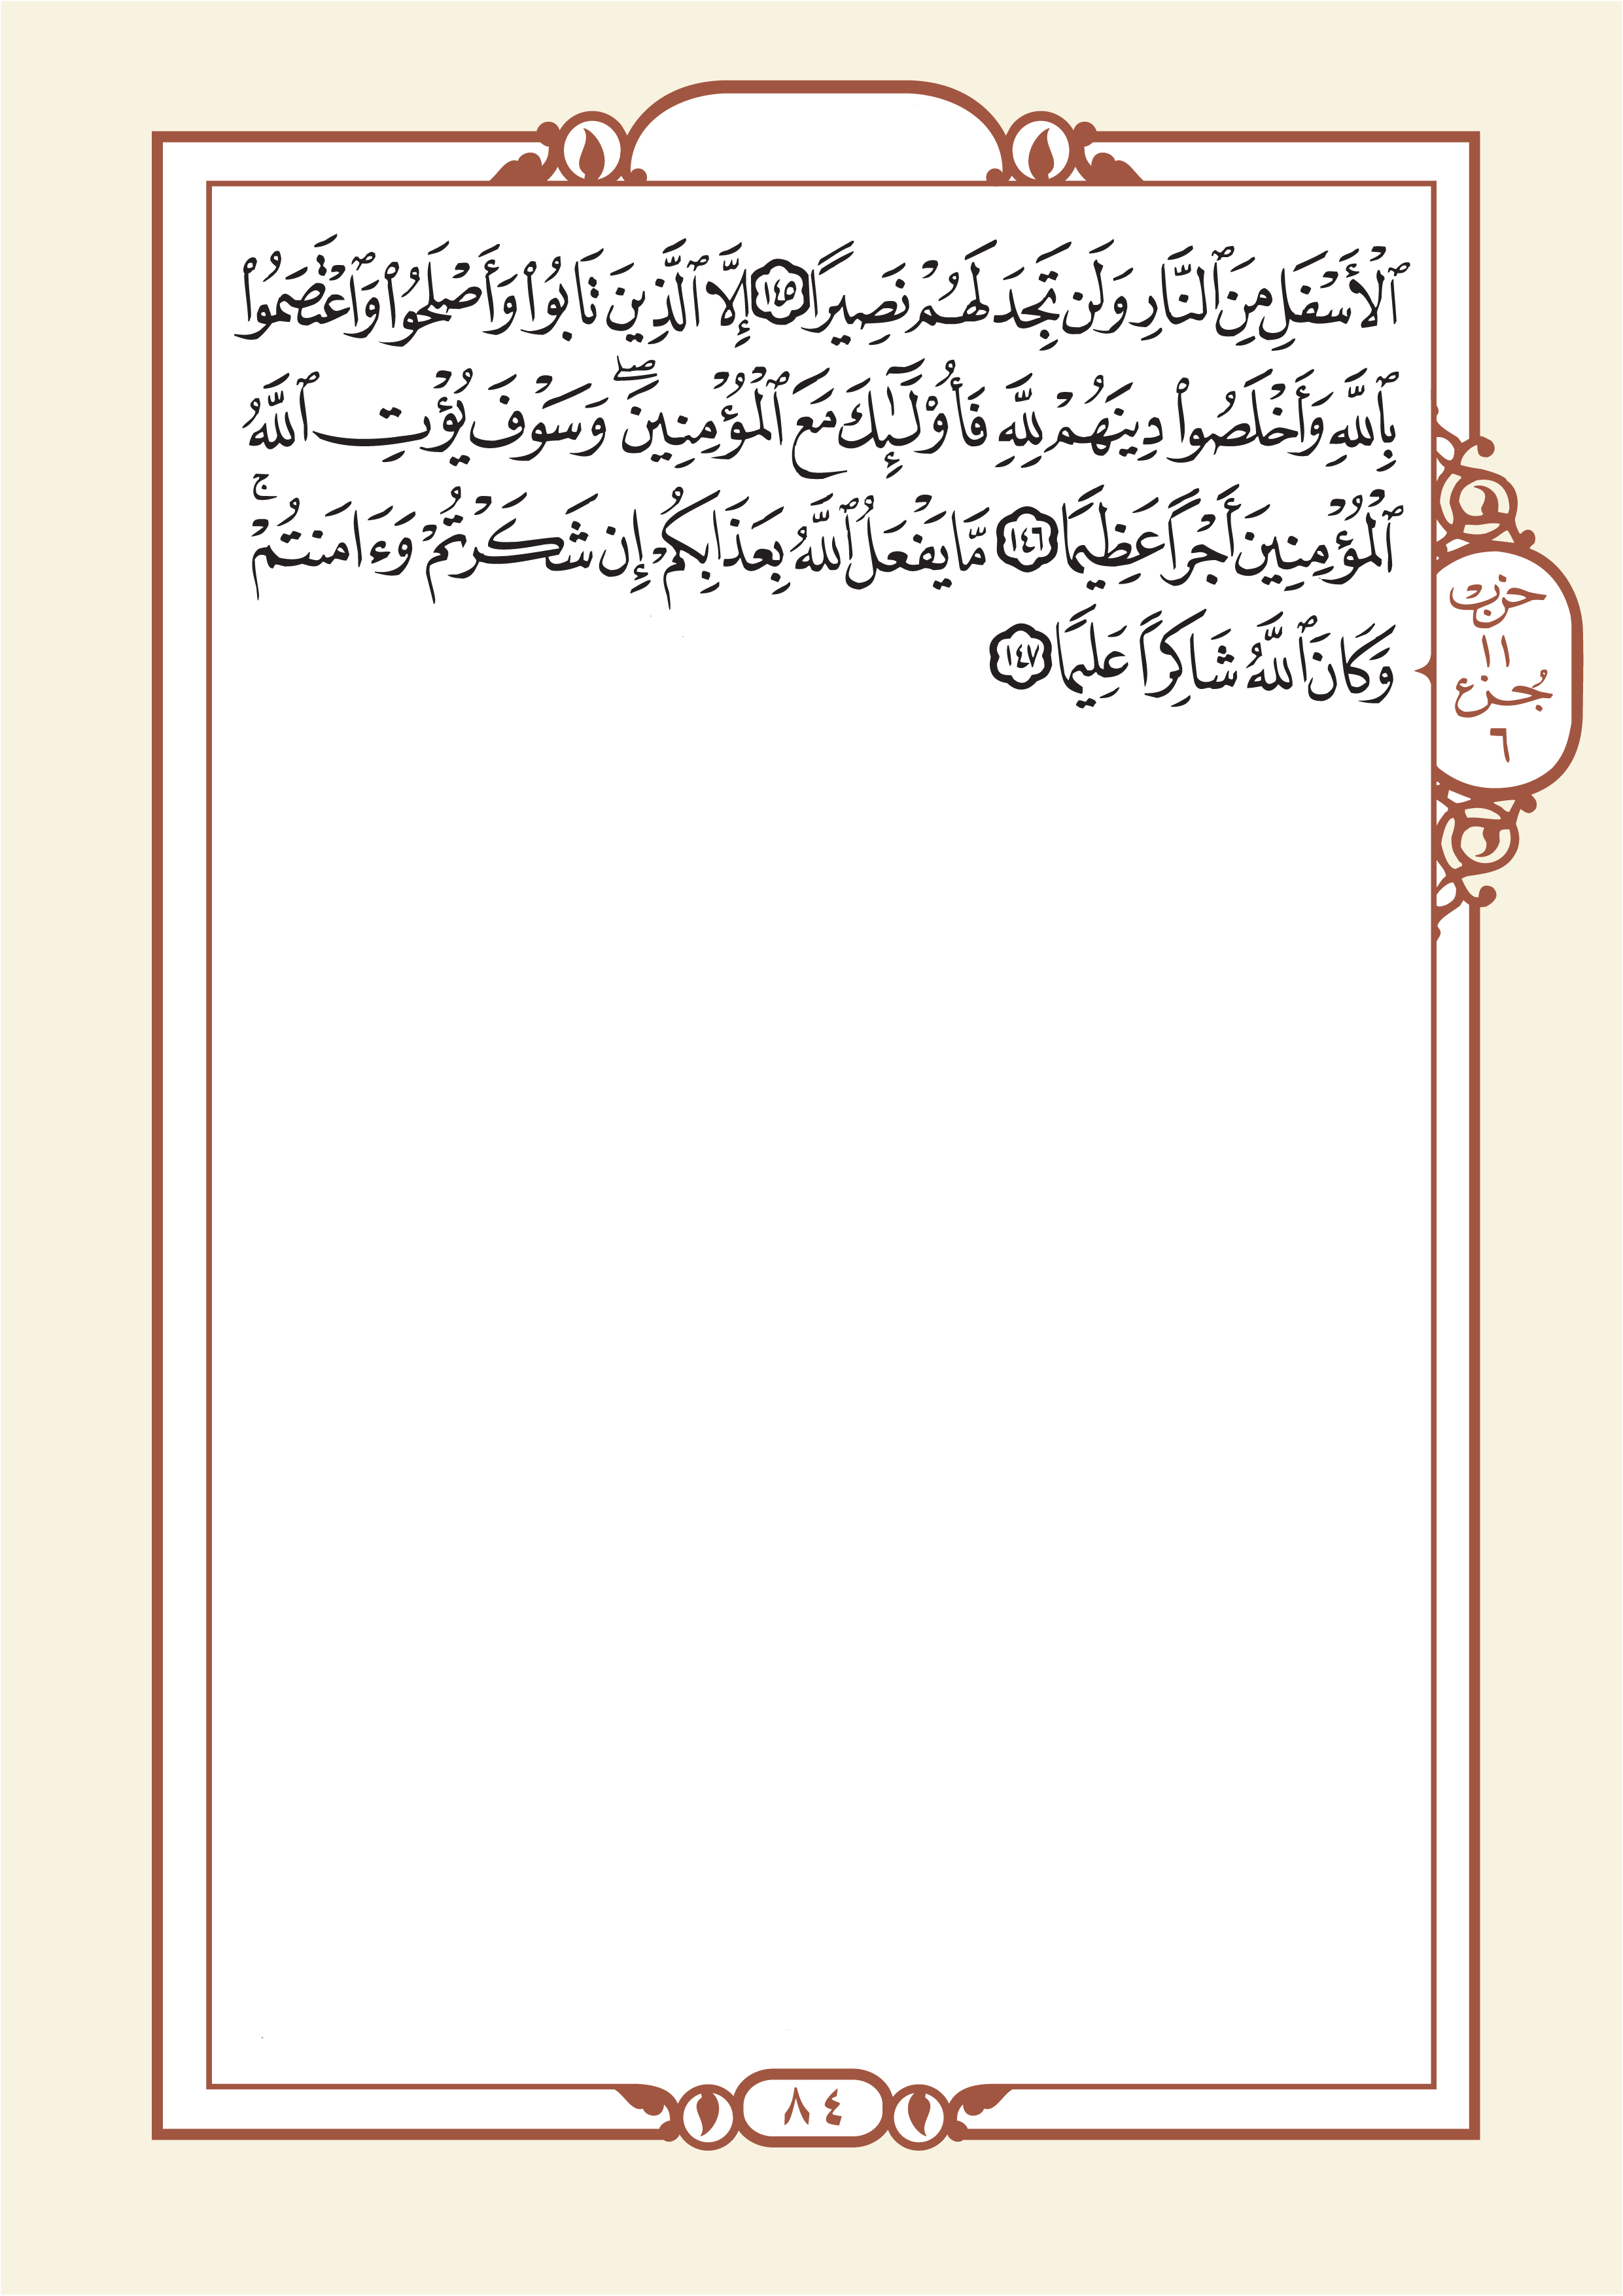 ٱلۡأَسۡفَلِ مِنَ ٱلنَّارِ وَلَن تَجِدَ لَهُمۡ نَصِيرًا ١٤٥ إِلَّا ٱلَّذِينَ تَابُواْ وَأَصۡلَحُواْ وَٱعۡتَصَمُواْ
بِٱللَّهِ وَأَخۡلَصُواْ دِينَهُمۡ لِلَّهِ فَأُوْلَٰٓئِكَ مَعَ ٱلۡمُؤۡمِنِينَۖ وَسَوۡفَ يُؤۡتِ ٱللَّهُ
ٱلۡمُؤۡمِنِينَ أَجۡرًا عَظِيمًا ١٤٦ مَّا يَفۡعَلُ ٱللَّهُ بِعَذَابِكُمۡ إِن شَكَرۡتُمۡ وَءَامَنتُمۡۚ
وَكَانَ ٱللَّهُ شَاكِرًا عَلِيمًا ١٤٧
حزب
١١
جُزء
٦
٨٤